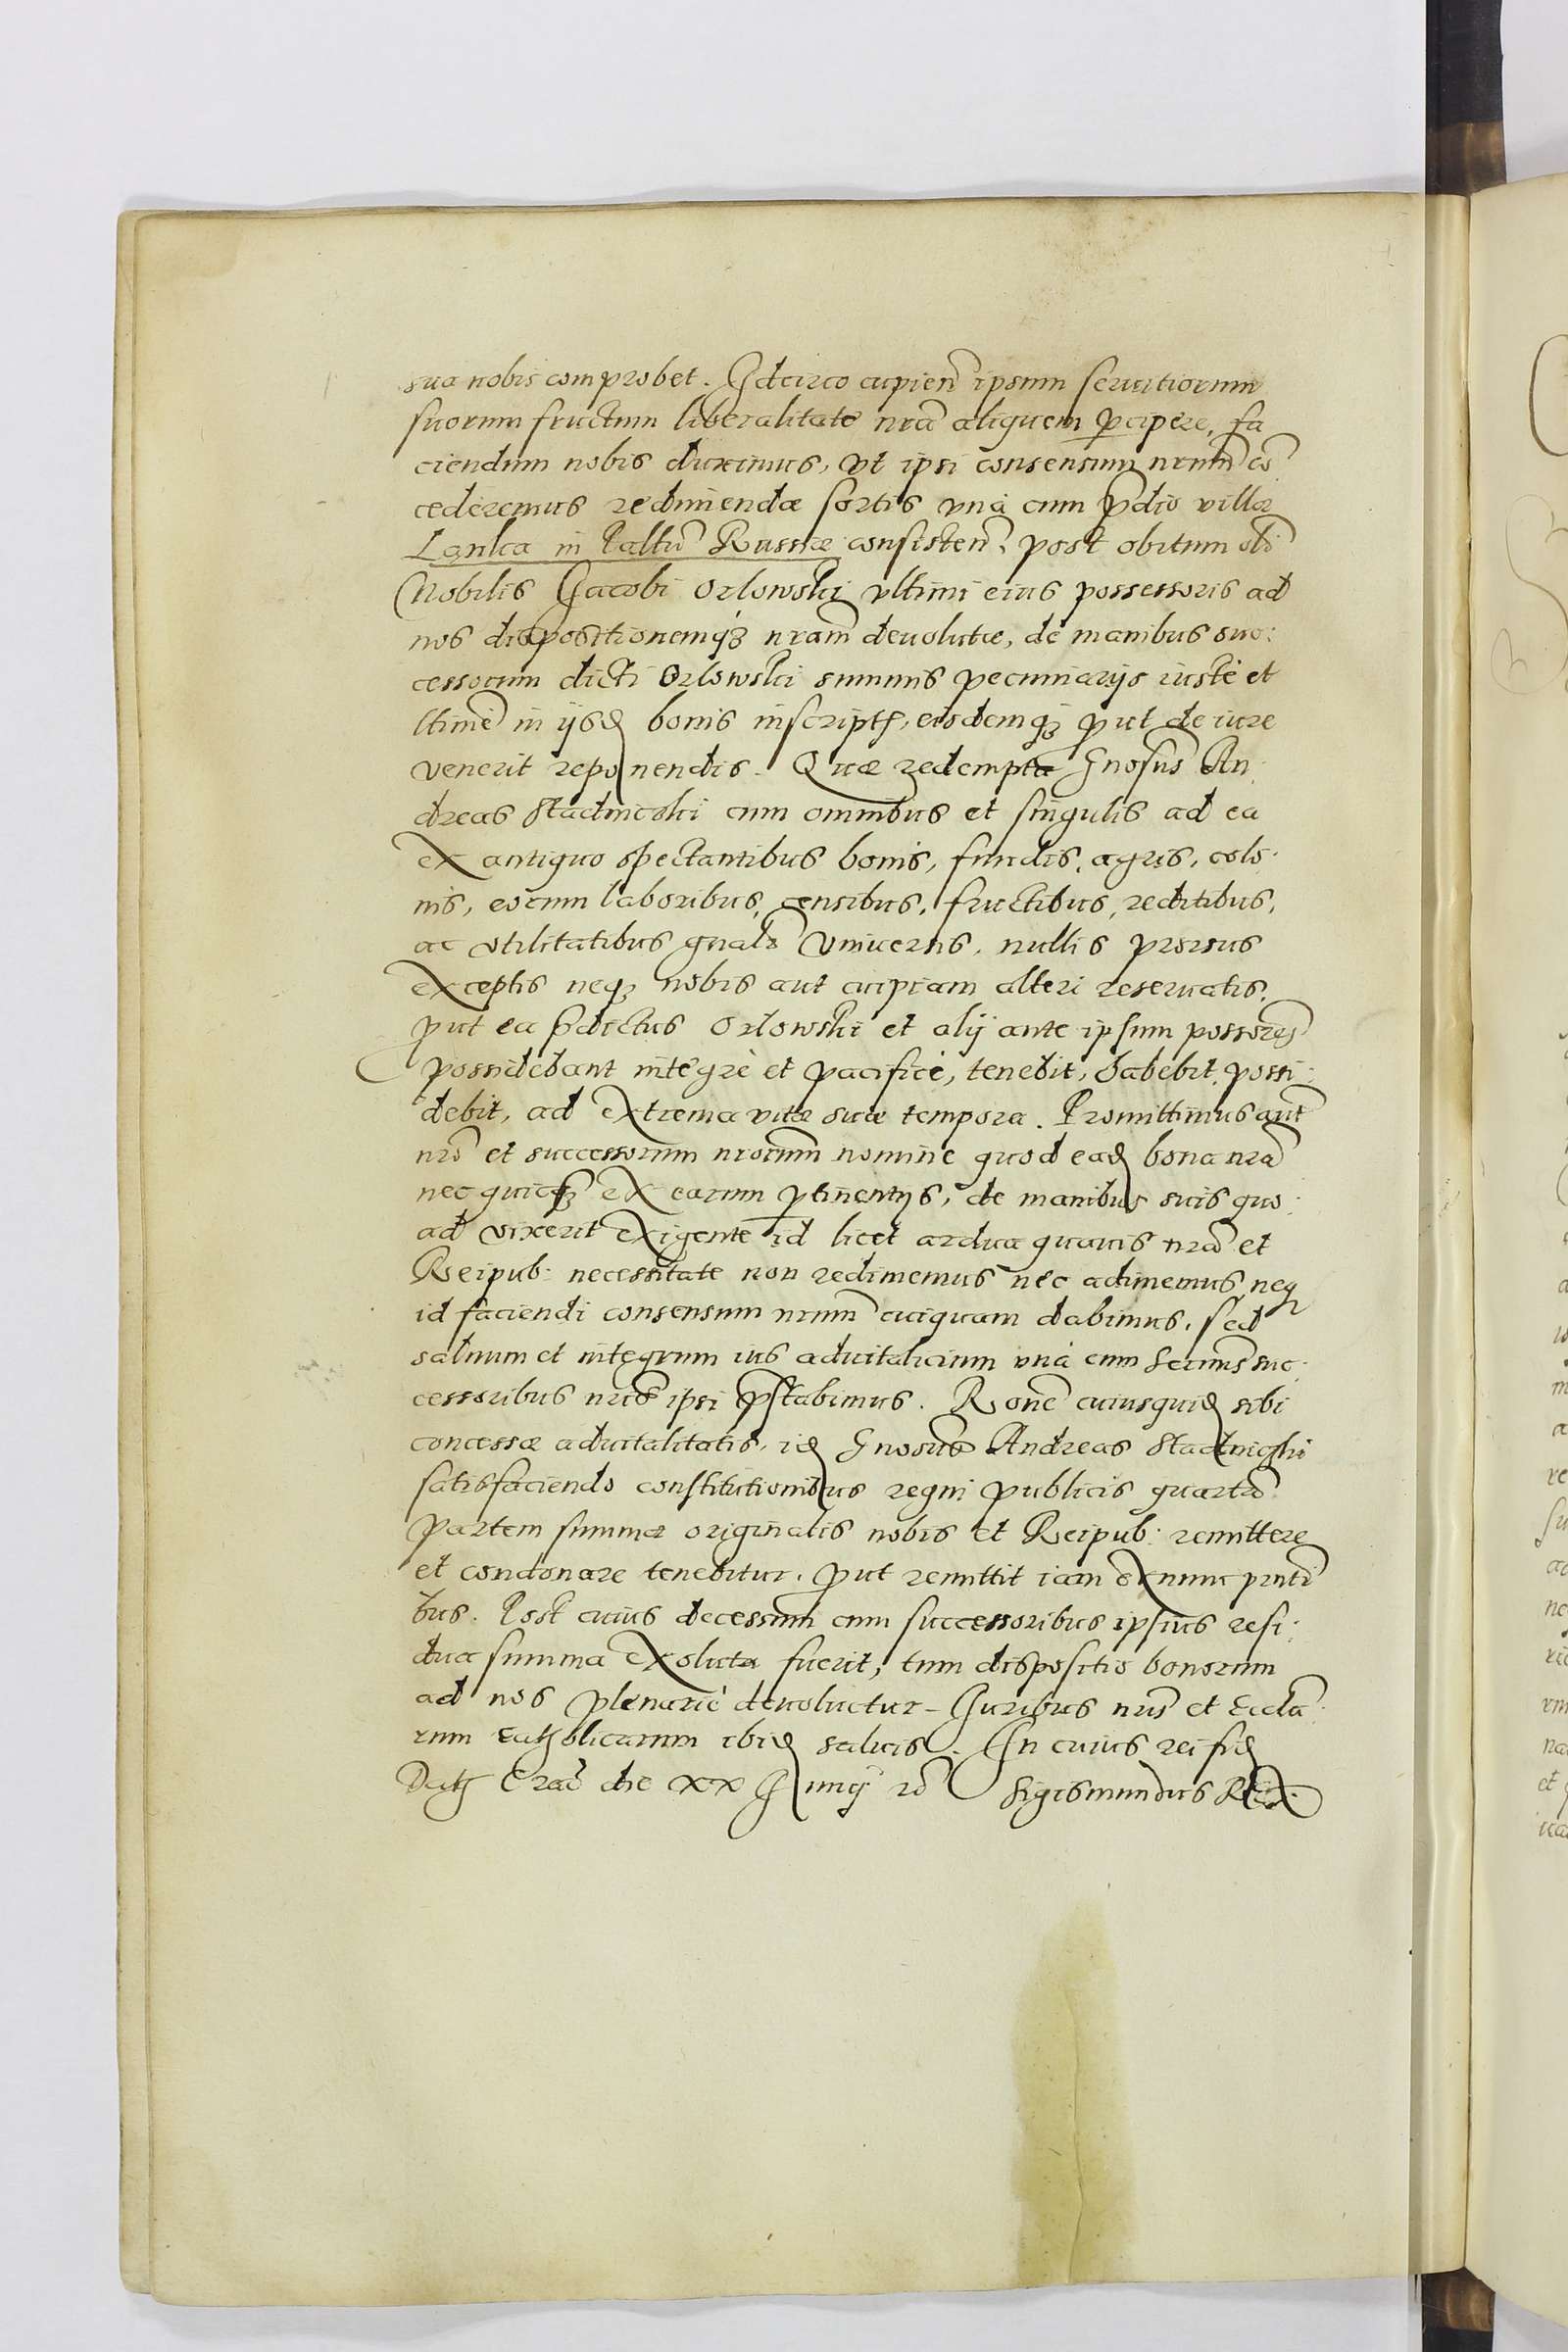 sua nobis comprobet. Idcirco cupien̄ ipsum seruitiorum
suorum fructum liberalitate nrã aliquem ꝑcipere, fa
ciendum nobis duximus, vt ipsi consensum nrum̃ cõ
cederemus redimendæ sortis vnà cum p̃dio villæ
Lanka in Pallũ Russiæ consisten̄, post obitum oĩ
Nobilis Jacobi Orlowski vltimi eius possessoris ad
nos dispositionemq₃ nram̃ deuolutæ, de manibus suc:
cessorum dicti Orlowski summis pecuniarijs iustè et
ltimè in ijsd bonis inscriptꝭ, eisdemq₃ ꝓut de iure
venerit reponendis. Quæ redempta Gnosus̃ An:
dreas Stadnicski cum omnibus et singulis ad ea
ex antiquo spectantibus bonis, fundis, agris, colo:
nis, eorum laboribus, censibus, fructibus, reditibus,
ac vtilitatibus gnalr̃ vniuersis, nullis prorsus
exceptis neq₃ nobis aut cuipiam alteri reseruatis,
ꝓut ea p̃dictus Orlowski et alij ante ipsum possores̃
possidebant integrè et pacificè, tenebit, habebit, possi:
debit, ad extrema vitæ suæ tempora. Promittimus aut̃
nrõ et successorum nrorum̃ nomine quod ead bona nrã
nec quicq₃ ex earum ꝑtinentijs, de manibus suis quo:
ad vixerit exigente id licet ardua quauis nrã et
Reipub: necessitate non redimemus nec adimemus, neq
id faciendi consensum nrum̃ cuiquam dabimus. Sed
saluum et integrum ius aduitalicium vnà cum Sermis̃ suc:
cessoribus nris̃ ipsi p̃stabimus. Rone̊ cuiusquid sibi
concessæ aduitalitatis, id Gnosus̃ Andreas Stadnicski
satisfaciendo constitutionibus regni publicis quartã
partem summæ originalis nobis et Reipub: remittere
et condonare tenebitur. ꝓut remittit iam ex nunc pntĩ
bus. Post cuius decessum cum successoribus ipsius resi:
dua summa exoluta fuerit, tum dispositio bonorum
ad nos plenariè deuoluetur. Juribus nris̃ et Ecclã
rum Catholicarum ibid saluis. In cuius rei fid
Datꝭ Crac̃ die xx Junij 10 Sigismundus Rex